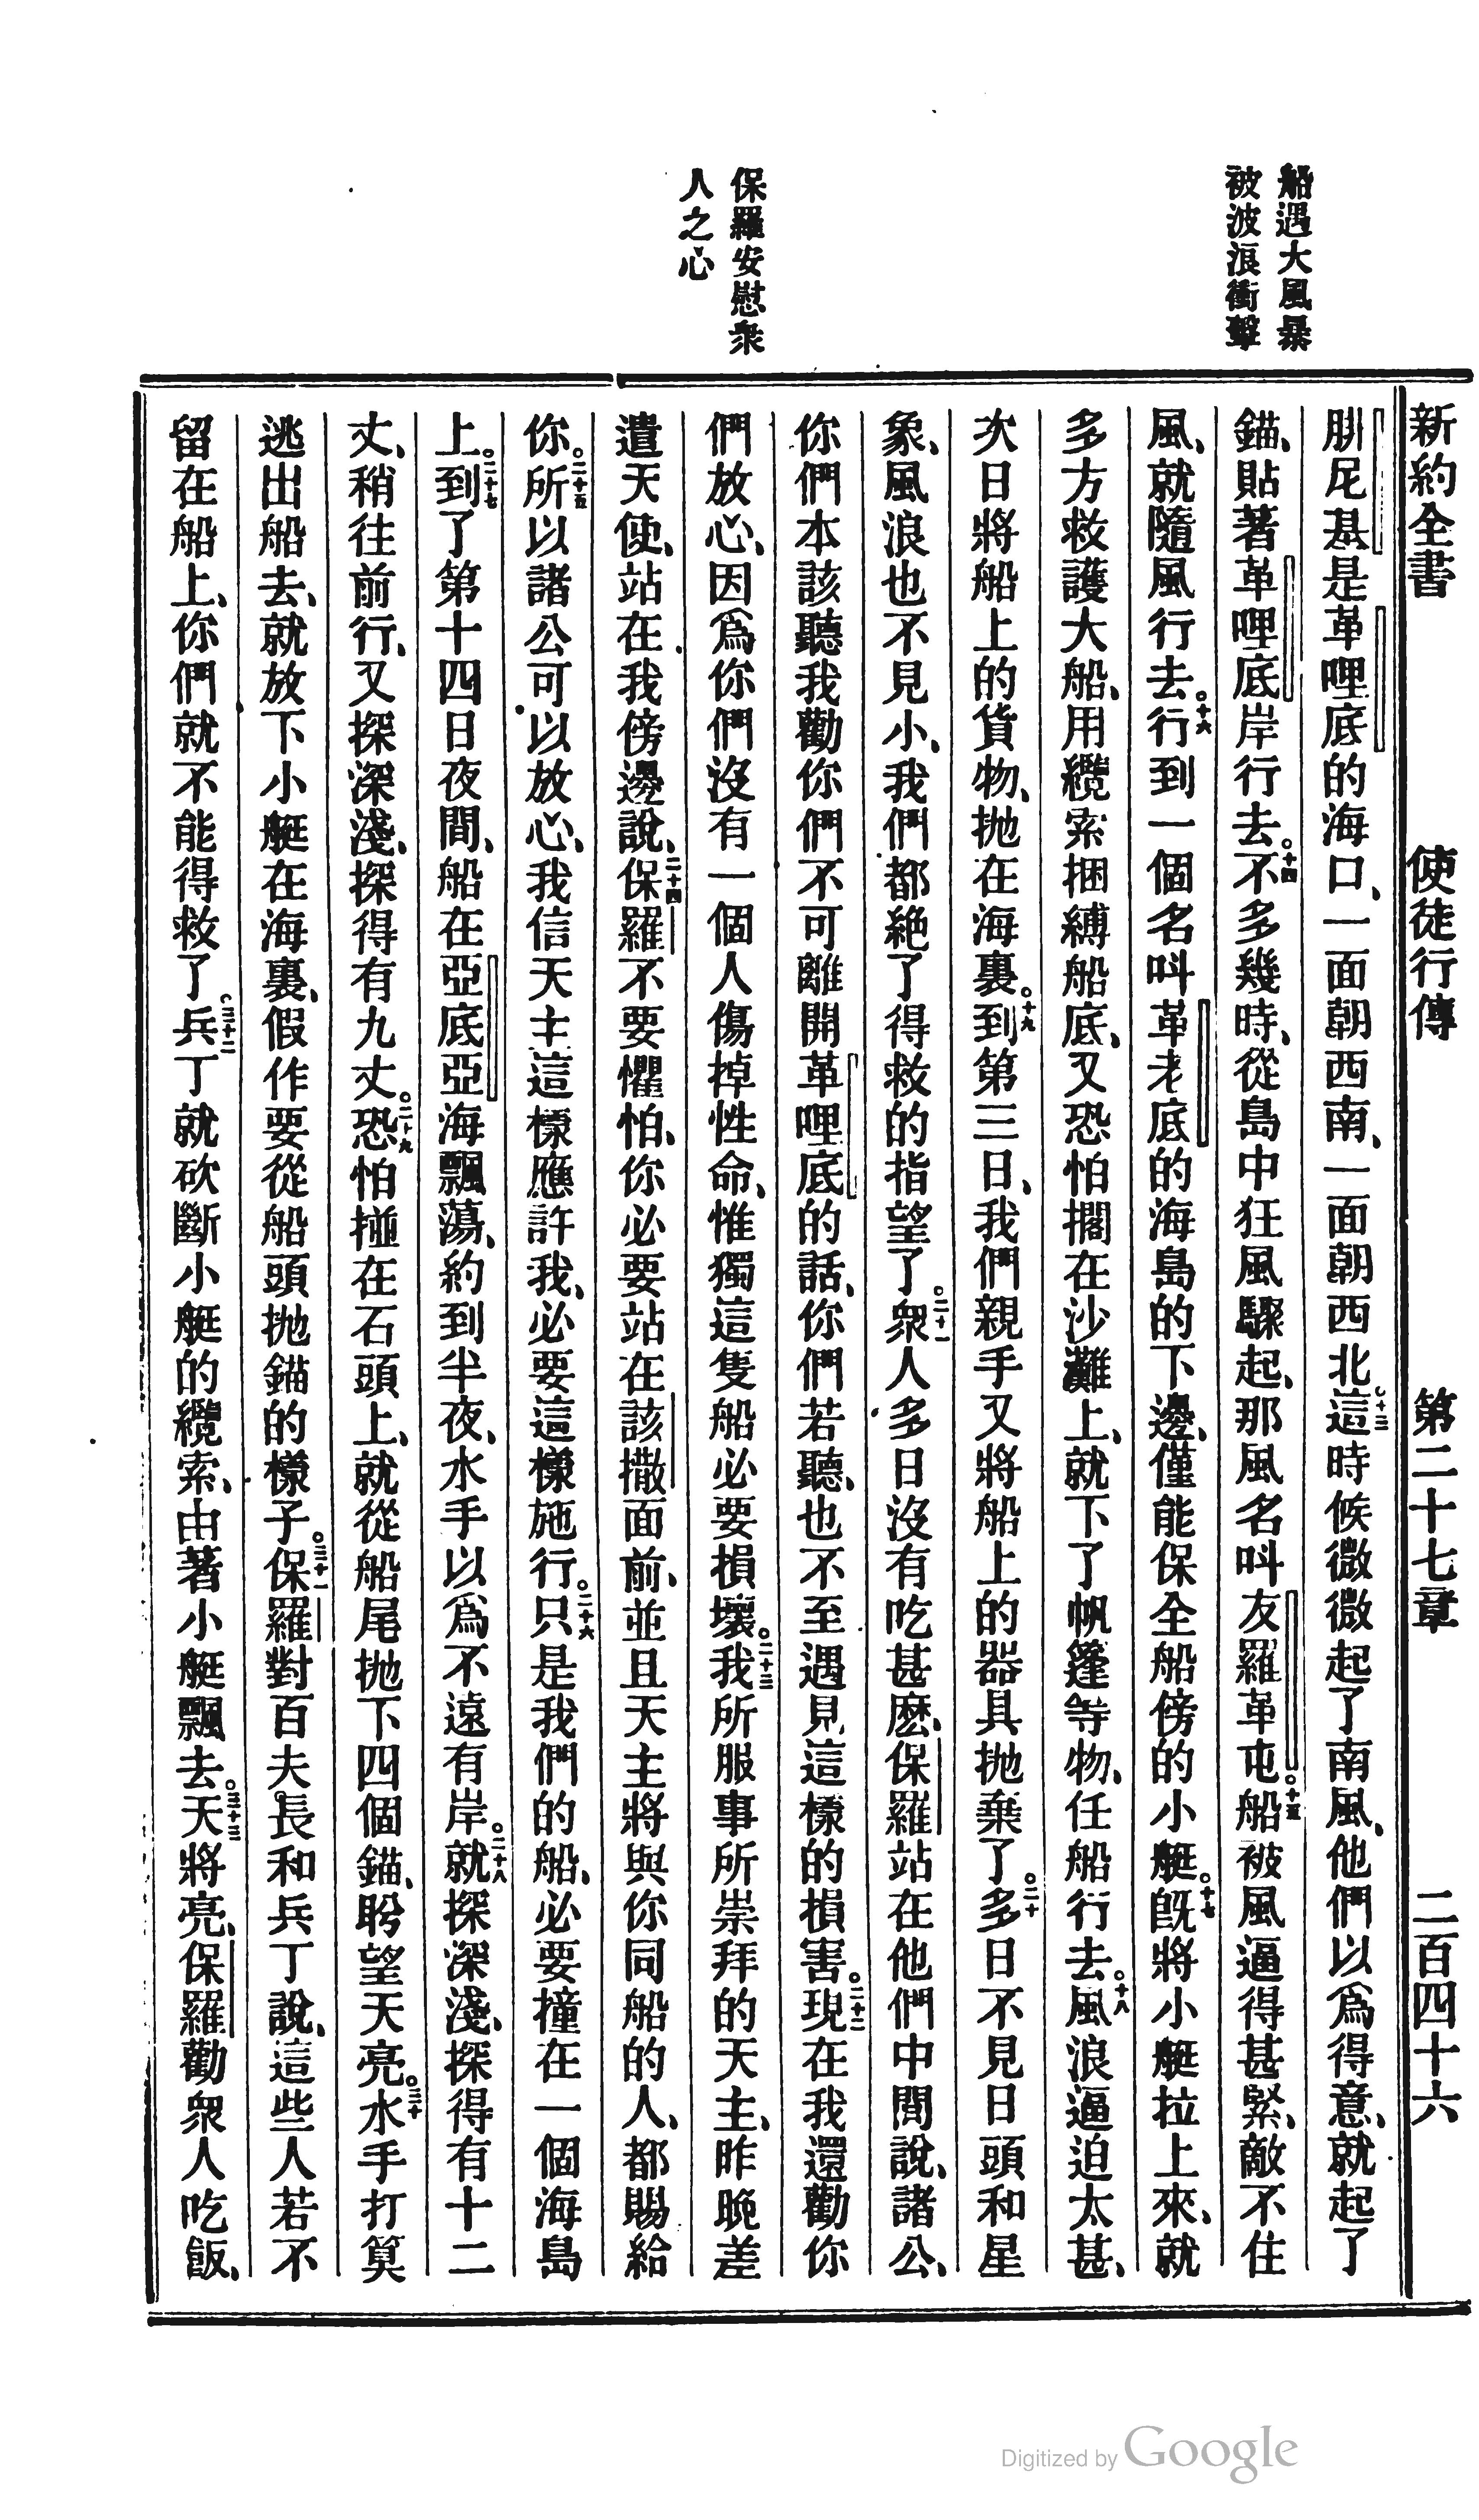 新約全書 使徒行傳 第二十七章 二百四十六
船遇大風暴
被波浪衝擊
保羅安慰衆
人之心
腓尼基是革哩底的海口、一面朝西南、一面朝西北。十三這時候微微起了南風、他們以爲得意、就起了
錨、貼著革哩底岸行去。十四不多幾時、從島中狂風驟起、那風名叫友羅革屯。十五船被風逼得甚緊、敵不住
風、就隨風行去。十六行到一個名叫革老底的海島的下邊、僅能保全船傍的小艇。十七旣將小艇拉上來、就
多方救護大船、用纜索捆縛船底、又恐怕擱在沙灘上、就下了帆篷等物、任船行去。十八風浪逼迫太甚、
次日將船上的貨物、抛在海裏。十九到第三日、我們親手又將船上的器具抛棄了。二十多日不見日頭和星
象、風浪也不見小、我們都絶了得救的指望了。二十一衆人多日沒有吃甚麽、保羅站在他們中間說、諸公、
你們本該聽我勸你們不可離開革哩底的話、你們若聽、也不至遇見這樣的損害。二十二現在我還勸你
們放心、因爲你們沒有一個人傷掉性命、惟獨這隻船必要損壞。二十三我所服事所崇拜的天主、昨晚差
遣天使、站在我傍邊說、二十四保羅不要懼怕、你必要站在該撒面前、並且天主將與你同船的人、都賜給
你。二十五所以諸公可以放心、我信天主這樣應許我、必要這樣施行。二十六只是我們的船、必要撞在一個海島
上。二十七到了第十四日夜間、船在亞底亞海飄蕩、約到半夜、水手以爲不遠有岸。二十八就探深淺、探得有十二
丈、稍往前行、又探深淺、探得有九丈。二十九恐怕撞在石頭上、就從船尾抛下四個錨、盼望天亮。三十水手打算
逃出船去、就放下小艇在海裏、假作要從船頭抛錨的樣子。三十一保羅對百夫長和兵丁說、這些人若不
留在船上、你們就不能得救了。三十二兵丁就砍斷小艇的纜索、由著小艇飄去。三十三天將亮、保羅勸衆人吃飯、
Digitized by Google